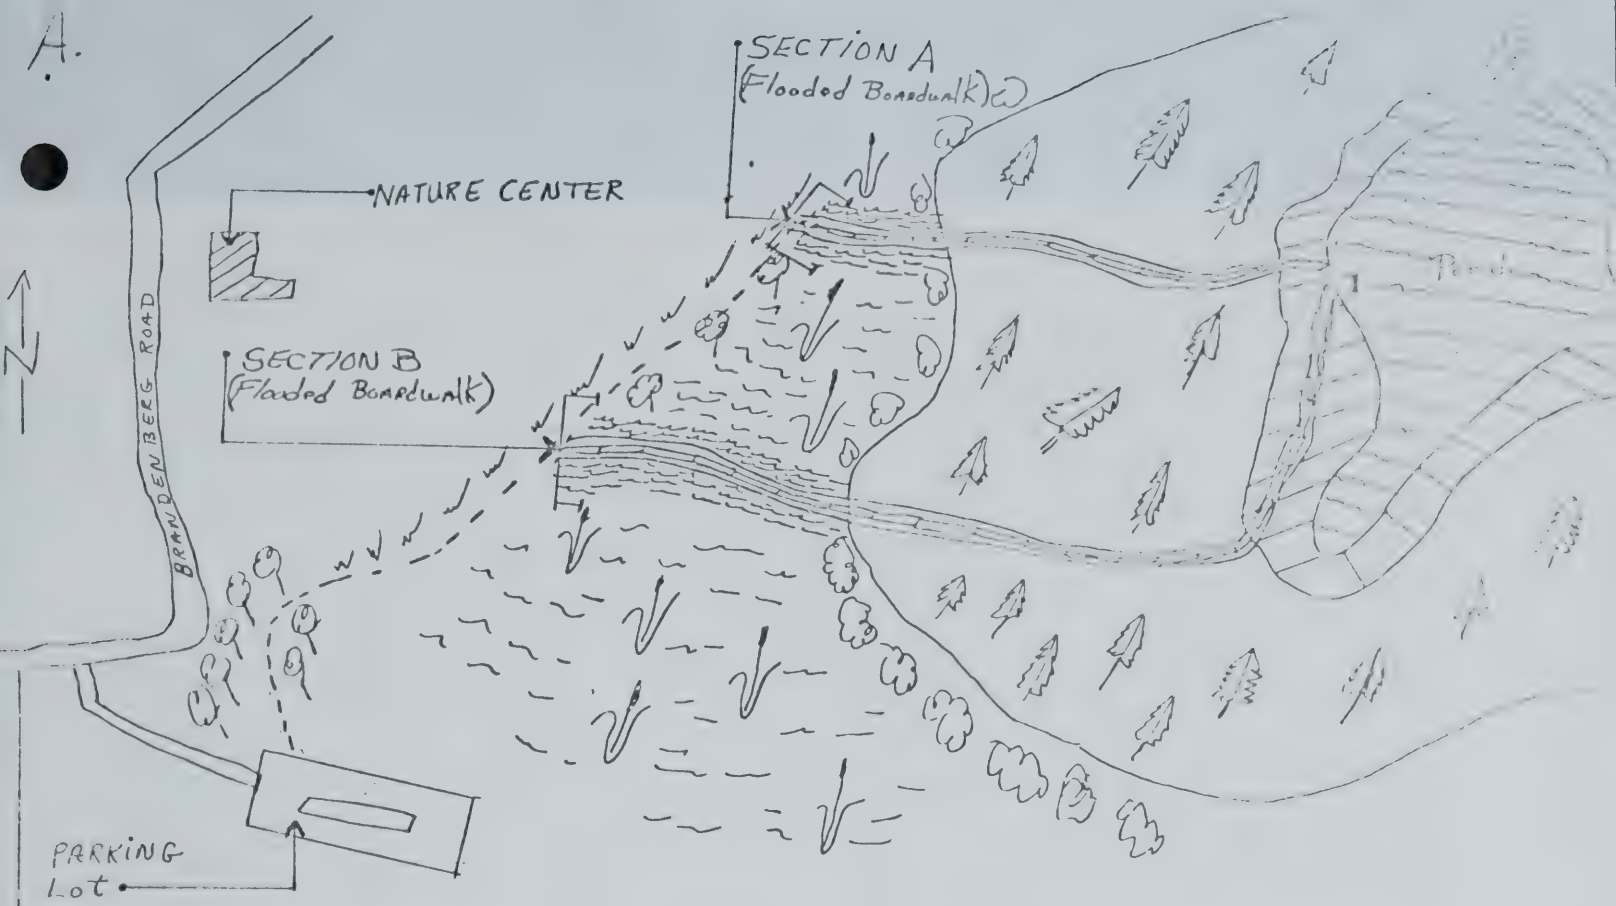 A.
SECTION A
(Flooded Boardwalk)
NATURE CENTER
N
SECTION B
(Flooded Boardwalk)
BRANDENBERG ROAD
PARKING
Lot